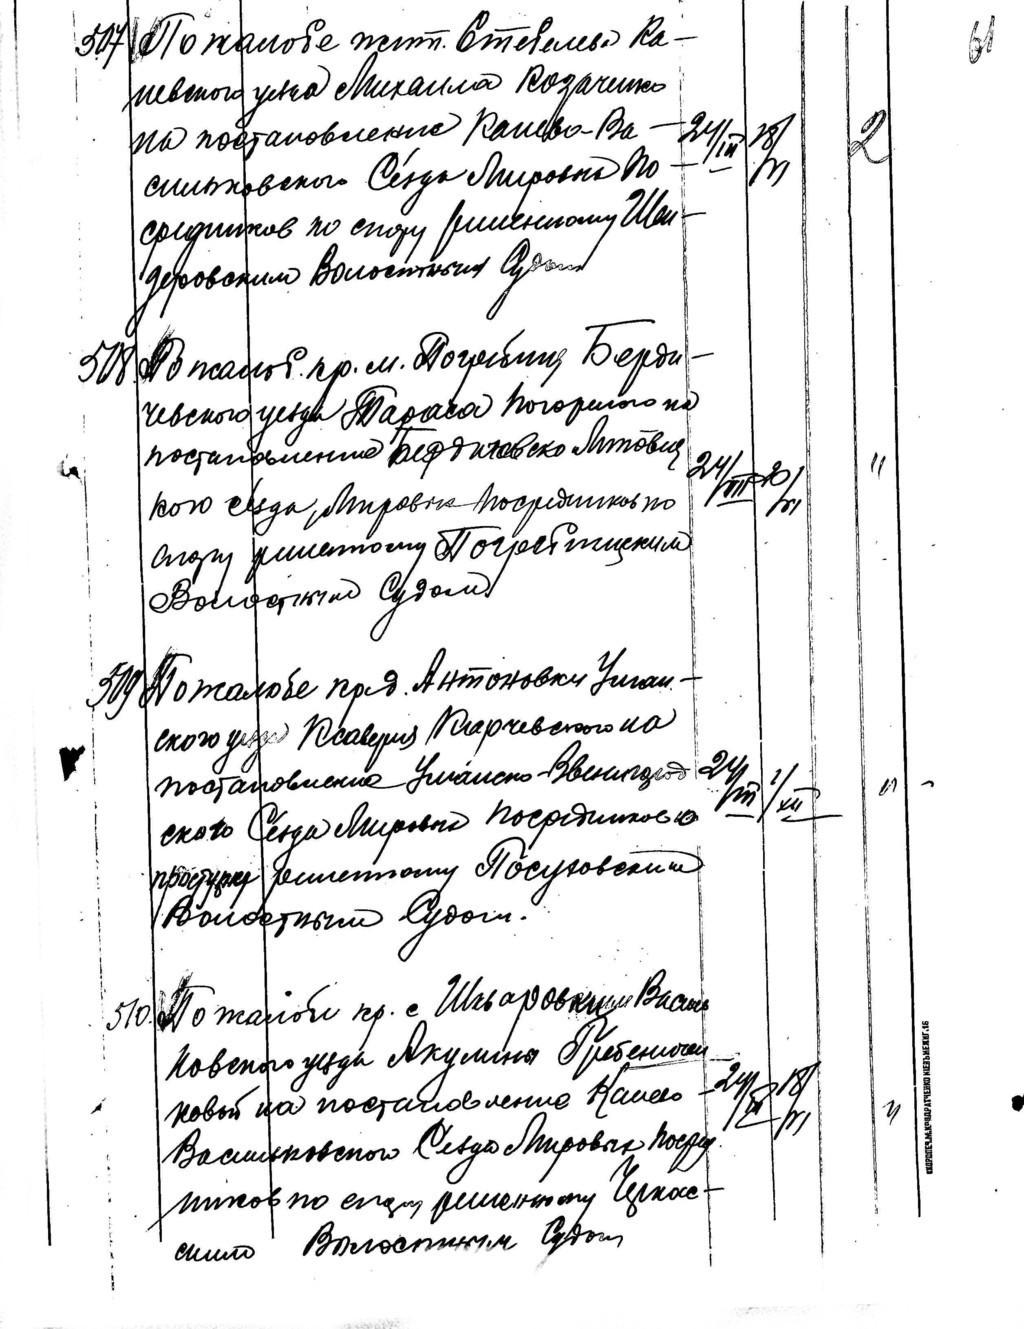 61
507 По жалобе жит. Стеблева Ка-
невского уезда Михаила Козаченко
на постановление Канево-Ва- 24/III 18/VI 2
сильковского Сезда Мировых По-
средников по спору решенному Шен-
деровским Волостным Судом
508 По жалоб. кр. м. Погребищ Берди-
чевского уезда Тараса Погорелого на
постановление Бердичевско Липовец
кого сезда Мировых Посредников по 24/III 20/VI "
спору решенному Погребищским
Волостным Судом
509 По жалобе кр. д. Антоновки Уман-
ского уезда Ксаверия Карчевского на
постановление Уманско-Звенигород 24/III 1/XII "
ского Сезда Мировых Посредников о
проступке решенному Посуховским
Волостным Судом.
510. По жалобе кр. с Василь
ковского уезда Акулины Гребенников
ковой на постановление Канево- 24/III 18/VI "
Васильковского Сезда Мировых Посред
ников по спору решенному Черкас-
ским Волостным Судом